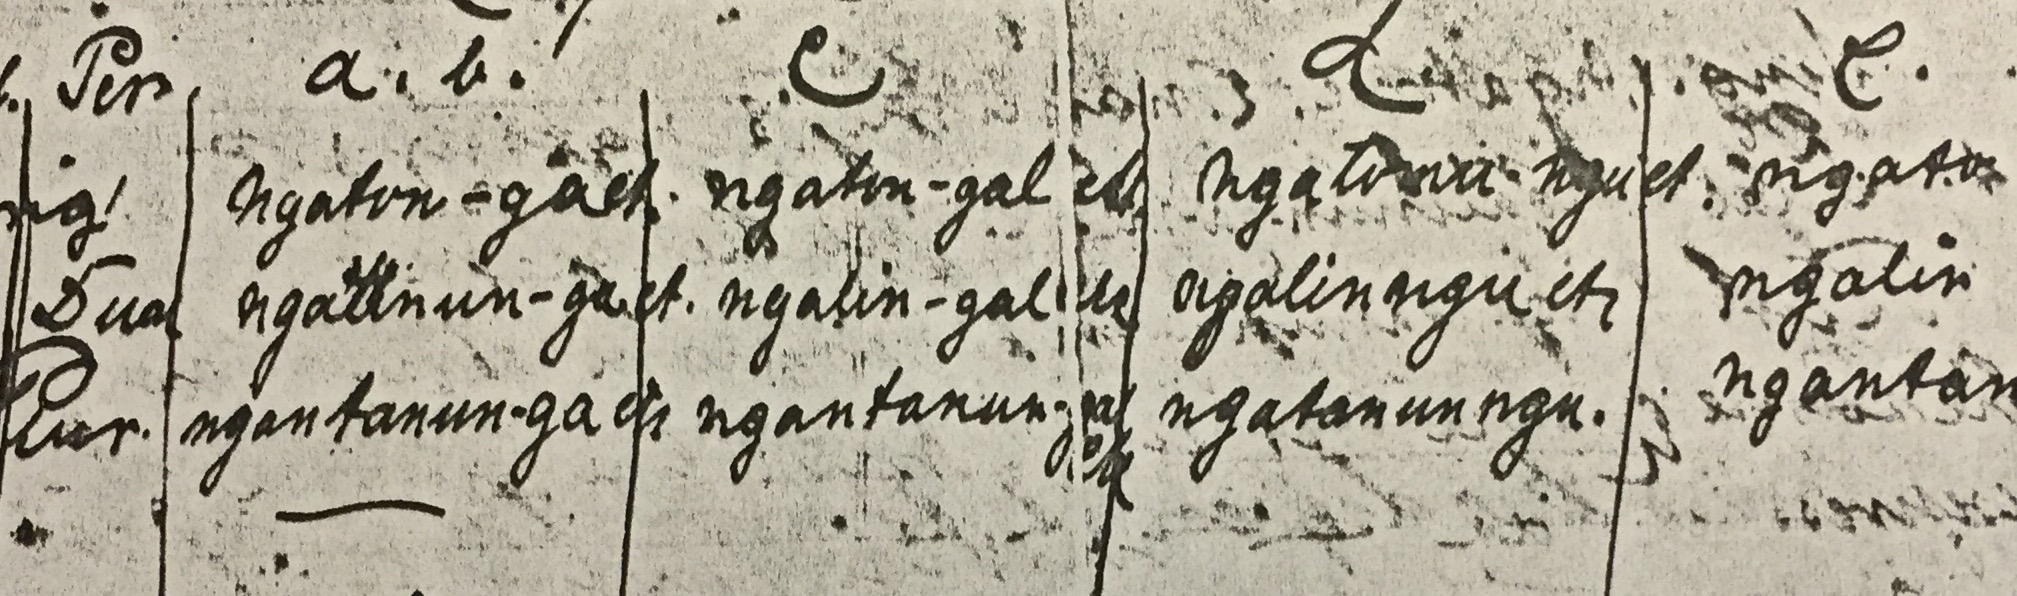 1. Per a. b. C d e.
ngaton-gaet. ngaton-gal et ngatoni-nguet. ngato
Dual ngalinun-gaet. ngalin-gal et ngalinngu et, ngalin
Plur. ngantanun-ga et ngantanun-gal et ngatanunngu. ngantan